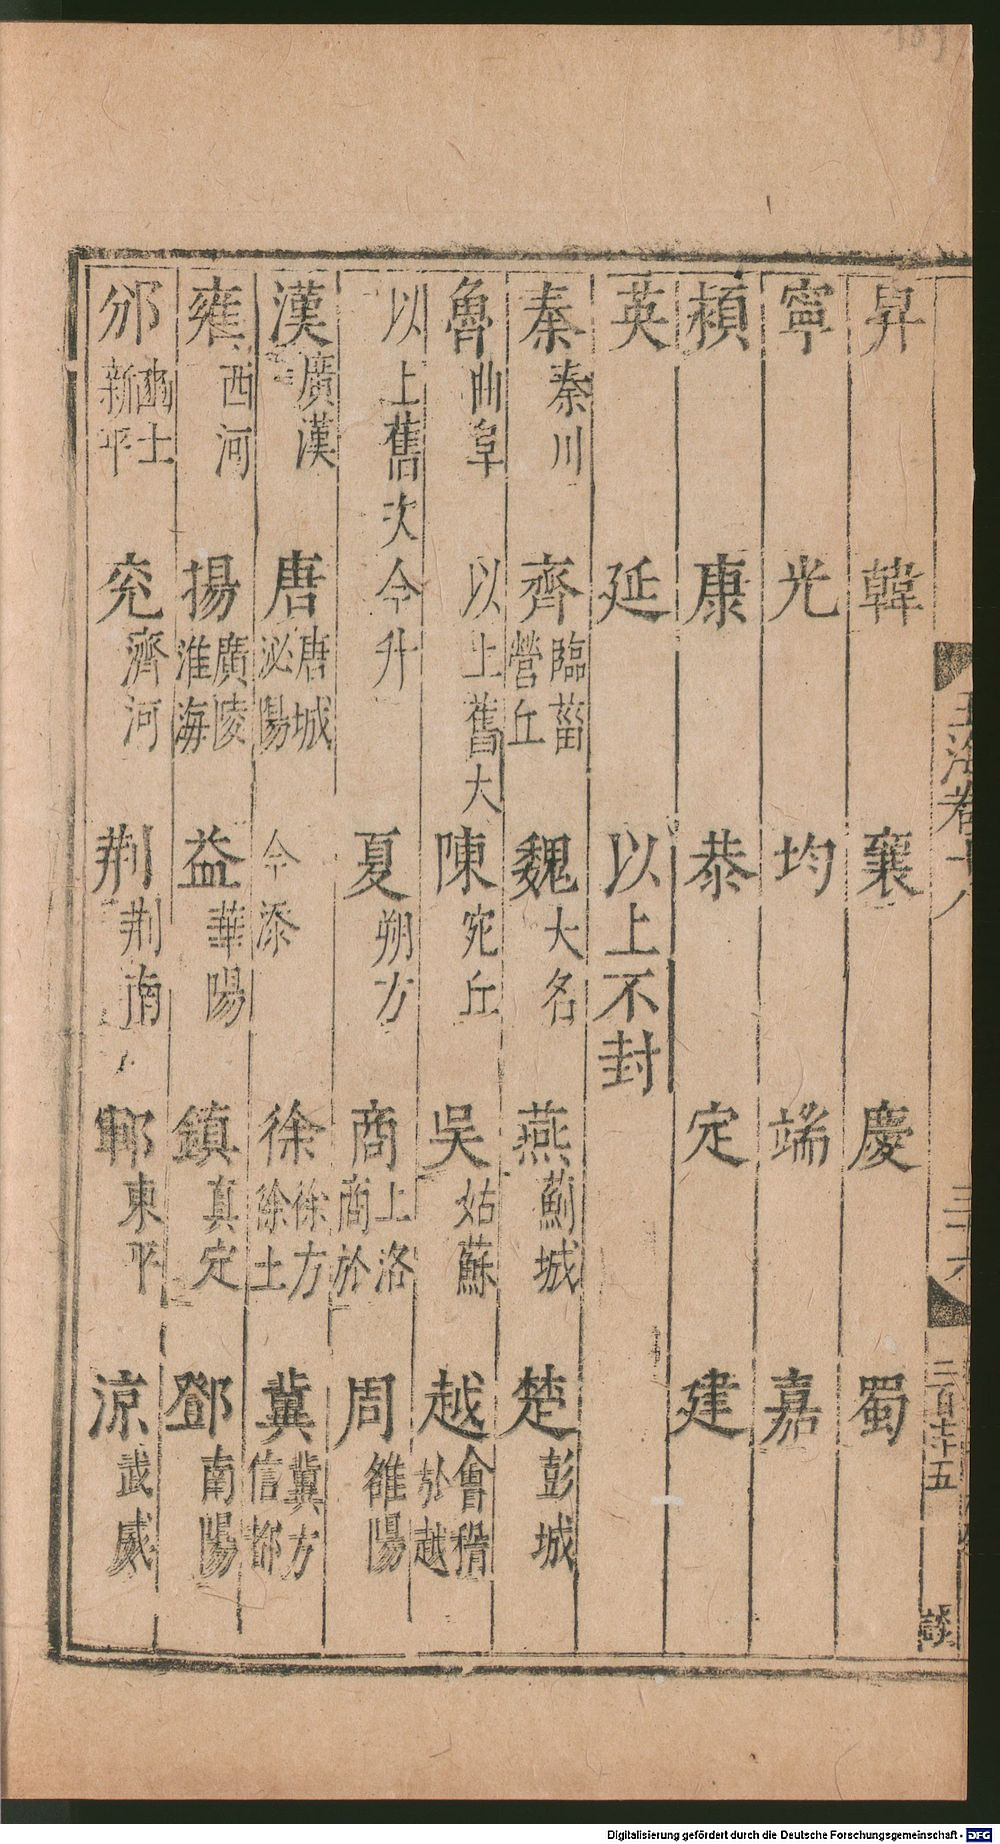 昇 韓 襄 慶 蜀
寧 光 均 端 嘉
頴 康 恭 定 建
英 延 以上不封
秦秦川 齊臨菑營丘 魏大名 燕薊城 楚彭城
魯曲阜 以上舊大 陳宛丘 吳姑蘇 越會稽於越
以上舊次今升 夏朔方 商上洛商於 周雒陽
漢廣漢 唐唐城泌陽 今添 徐徐方徐土 冀冀方信都
雍西河 揚廣陵淮海 益華陽 鎮真定 鄧南陽
邠豳土新平 兖濟河 荆荆南 鄆東平 涼武威
玉海卷十八
三十六
二百七十五
談
Digitalisierung gefördert durch die Deutsche Forschungsgemeinschaft - DFG